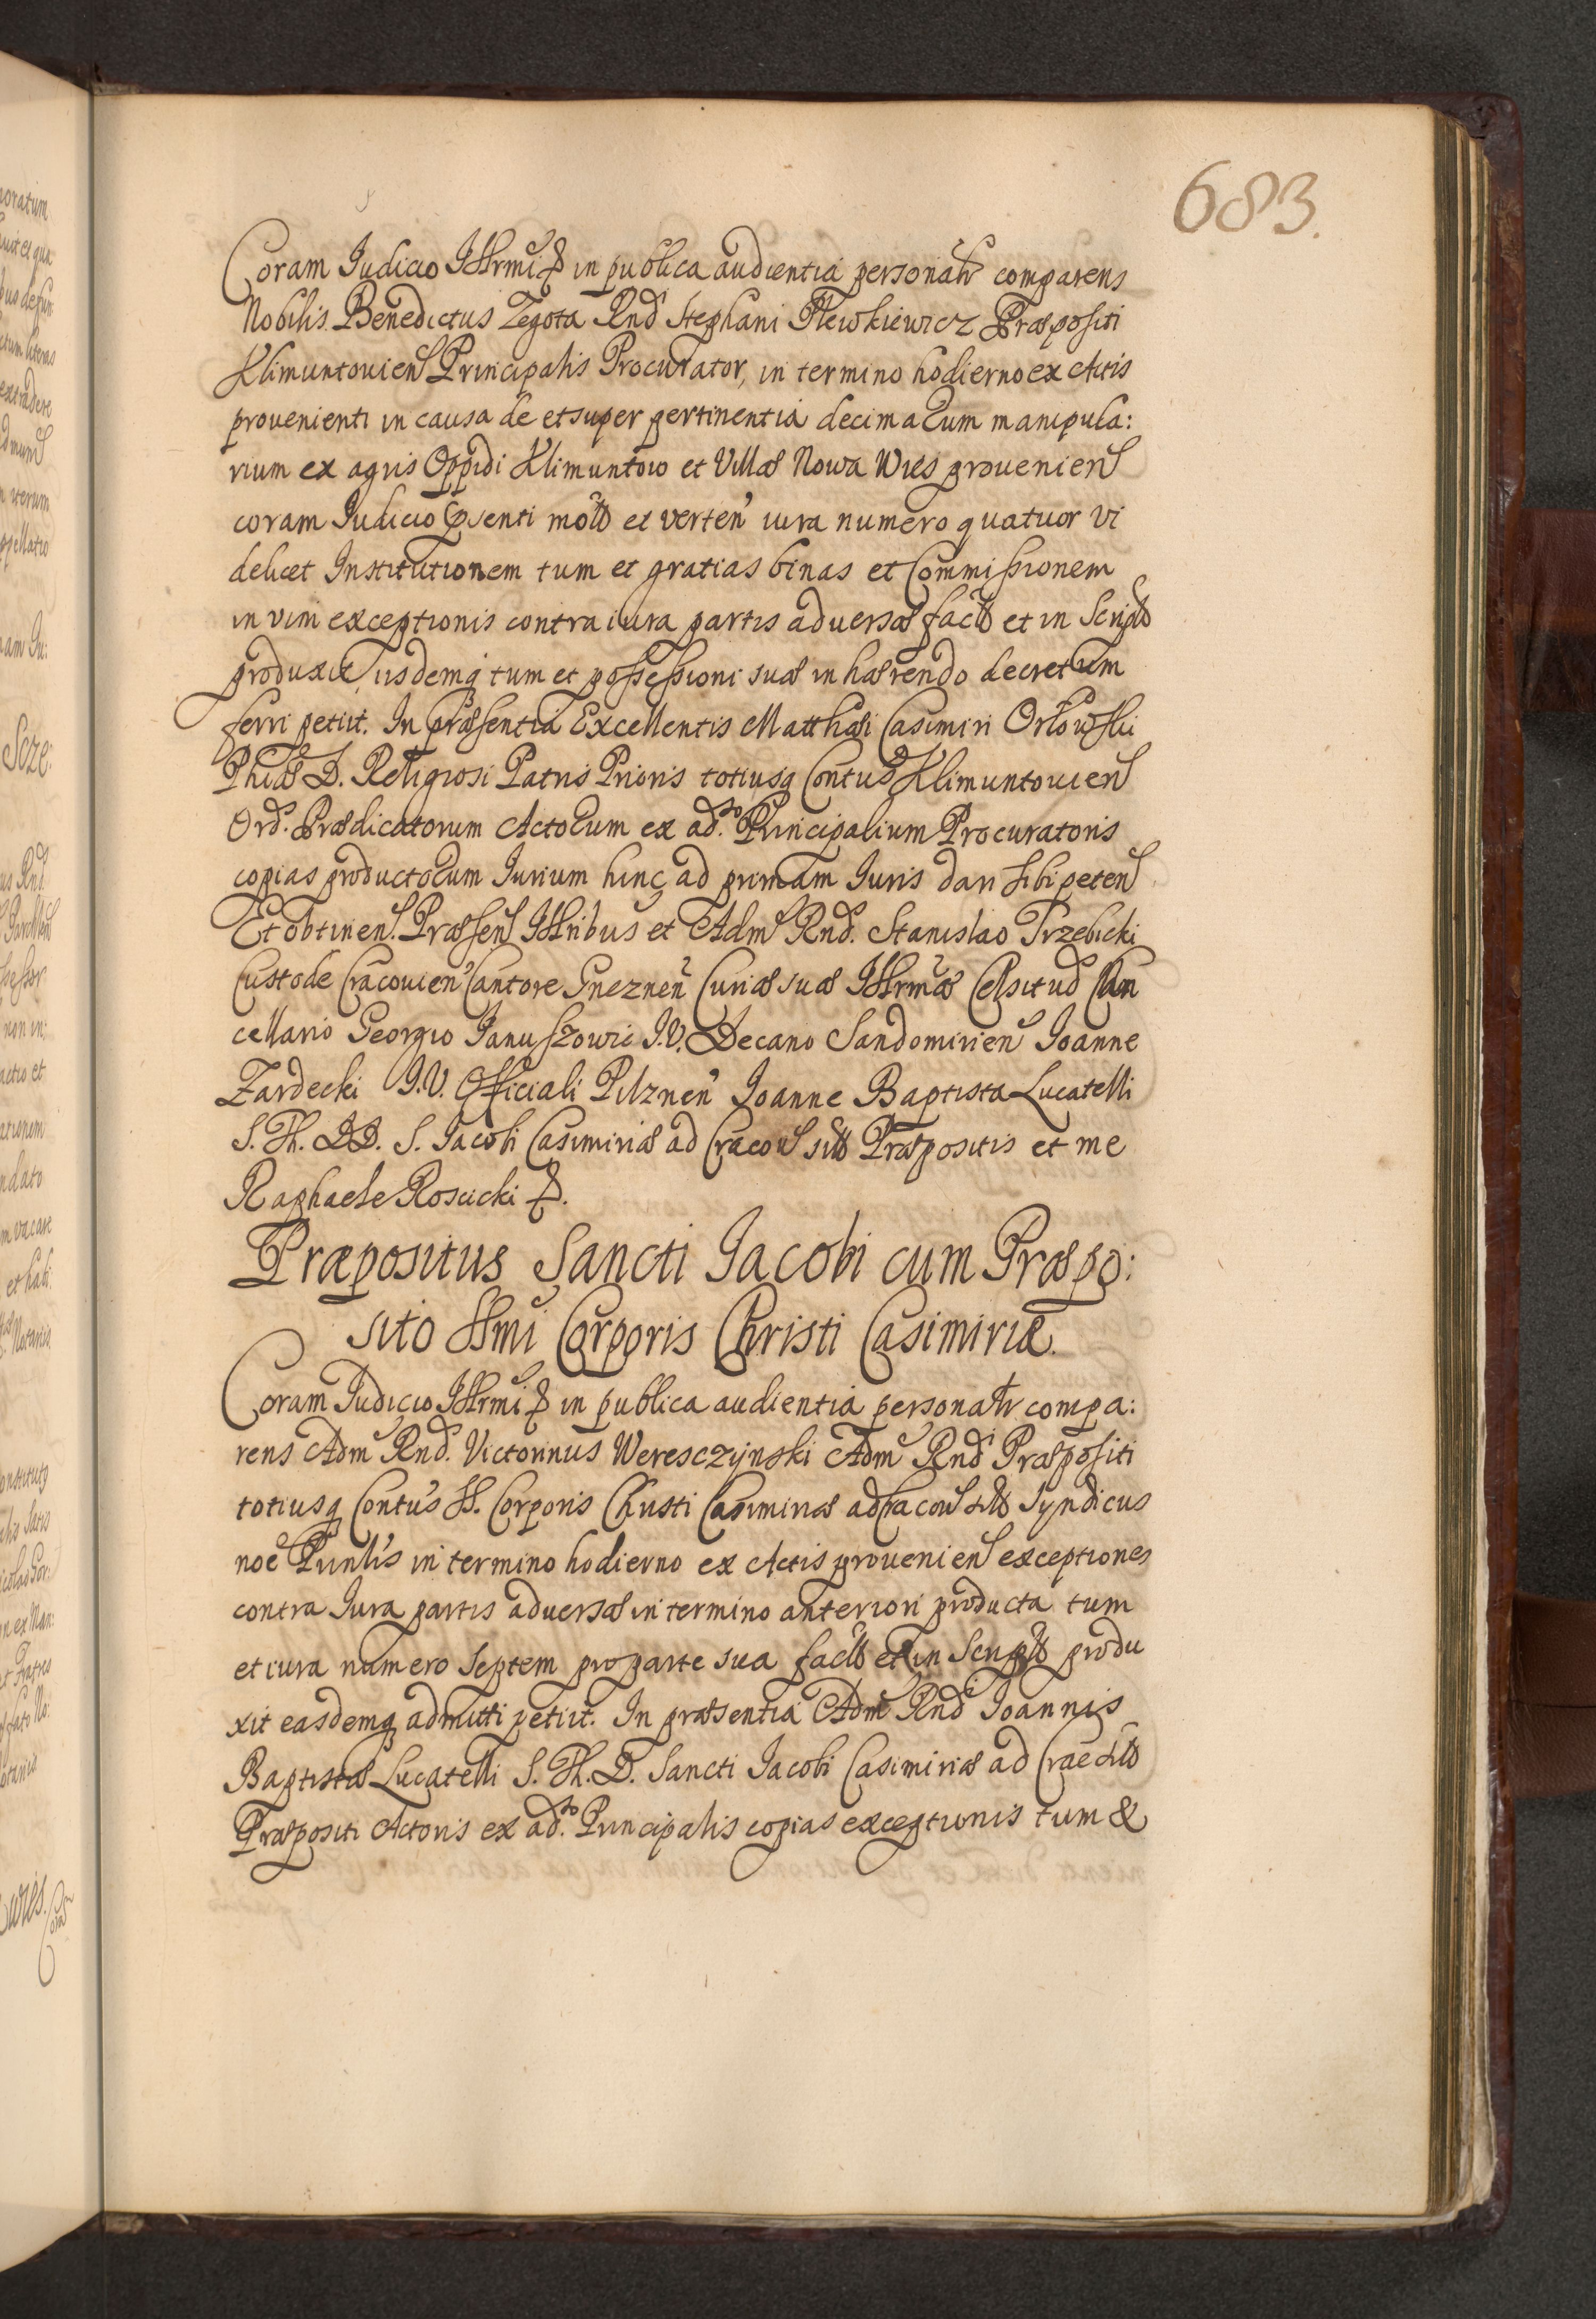 683.
Coram Judicio Illrmi & in publica audientia personalr comparens
Nobilis Benedictus Zegota Rnd Stephani Plewkiewicz Præpositi
Klimuntouien Principalis Procurator, in termino hodierno ex Actis
prouenienti in causa de et super pertinentia decimarum manipula:
rium ex agris Oppidi Klimuntow et Villæ Nowa Wies prouenien
coram Judicio præsenti mot et verten iura numero quatuor vi
delicet Institutionem tum et gratias binas et Commissionem
in vim exceptionis contra iura partis aduersæ fact et in Script
produxit iisdemq tum et possessioni suæ inhærendo decretum
ferri petiit. In præsentia Excellentis Matthæi Casimiri Orłowski
Phiæ D. Religiosi Patris Prioris totiusq Contus Klimuntouien
Ord. Prædicatorum Actorum ex ad.so Principalium Procuratoris
copias productorum Jurium hinc ad primam Juris dari sibi peten
Et obtinen. Præsen Illribus et Adm Rnd. Stanislao Trzebicki
Custode Cracouien Cantore Gneznen Curiæ suæ Illrmæ Celsitud Can
cellario Georgio Januszowic J.V. Decano Sandomirien Joanne
Zardecki J.V. Officiali Pilznen Joanne Baptista Lucatelli
S. Th. DD. S. Jacobi Casimiriæ ad Cracou sit Præpositis et me
Raphaele Roscicki &.
Præpositus Sancti Jacobi cum Præpo:
sito SSmi Corporis Christi Casimiriæ.
Coram Judicio Illrmi & in publica audientia personalr compa:
rens Adm Rnd. Victorinus Weresczynski Adm Rnd Præpositi
totiusq Contus SS. Corporis Christi Casimiriæ ad Cracou sit Syndicus
noe Prinlis in termino hodierno ex Actis prouenien exceptiones
contra Jura partis aduersæ in termino anteriori producta tum
et iura numero septem pro parte sua fact et in Script produ
xit easdemq admitti petiit. In præsentia Adm Rnd Joannis
Baptistæ Lucatelli S. Th. D. Sancti Jacobi Casimiriæ ad Crac sit
Præpositi Actoris ex ad.so Principalis copias exceptionis tum &